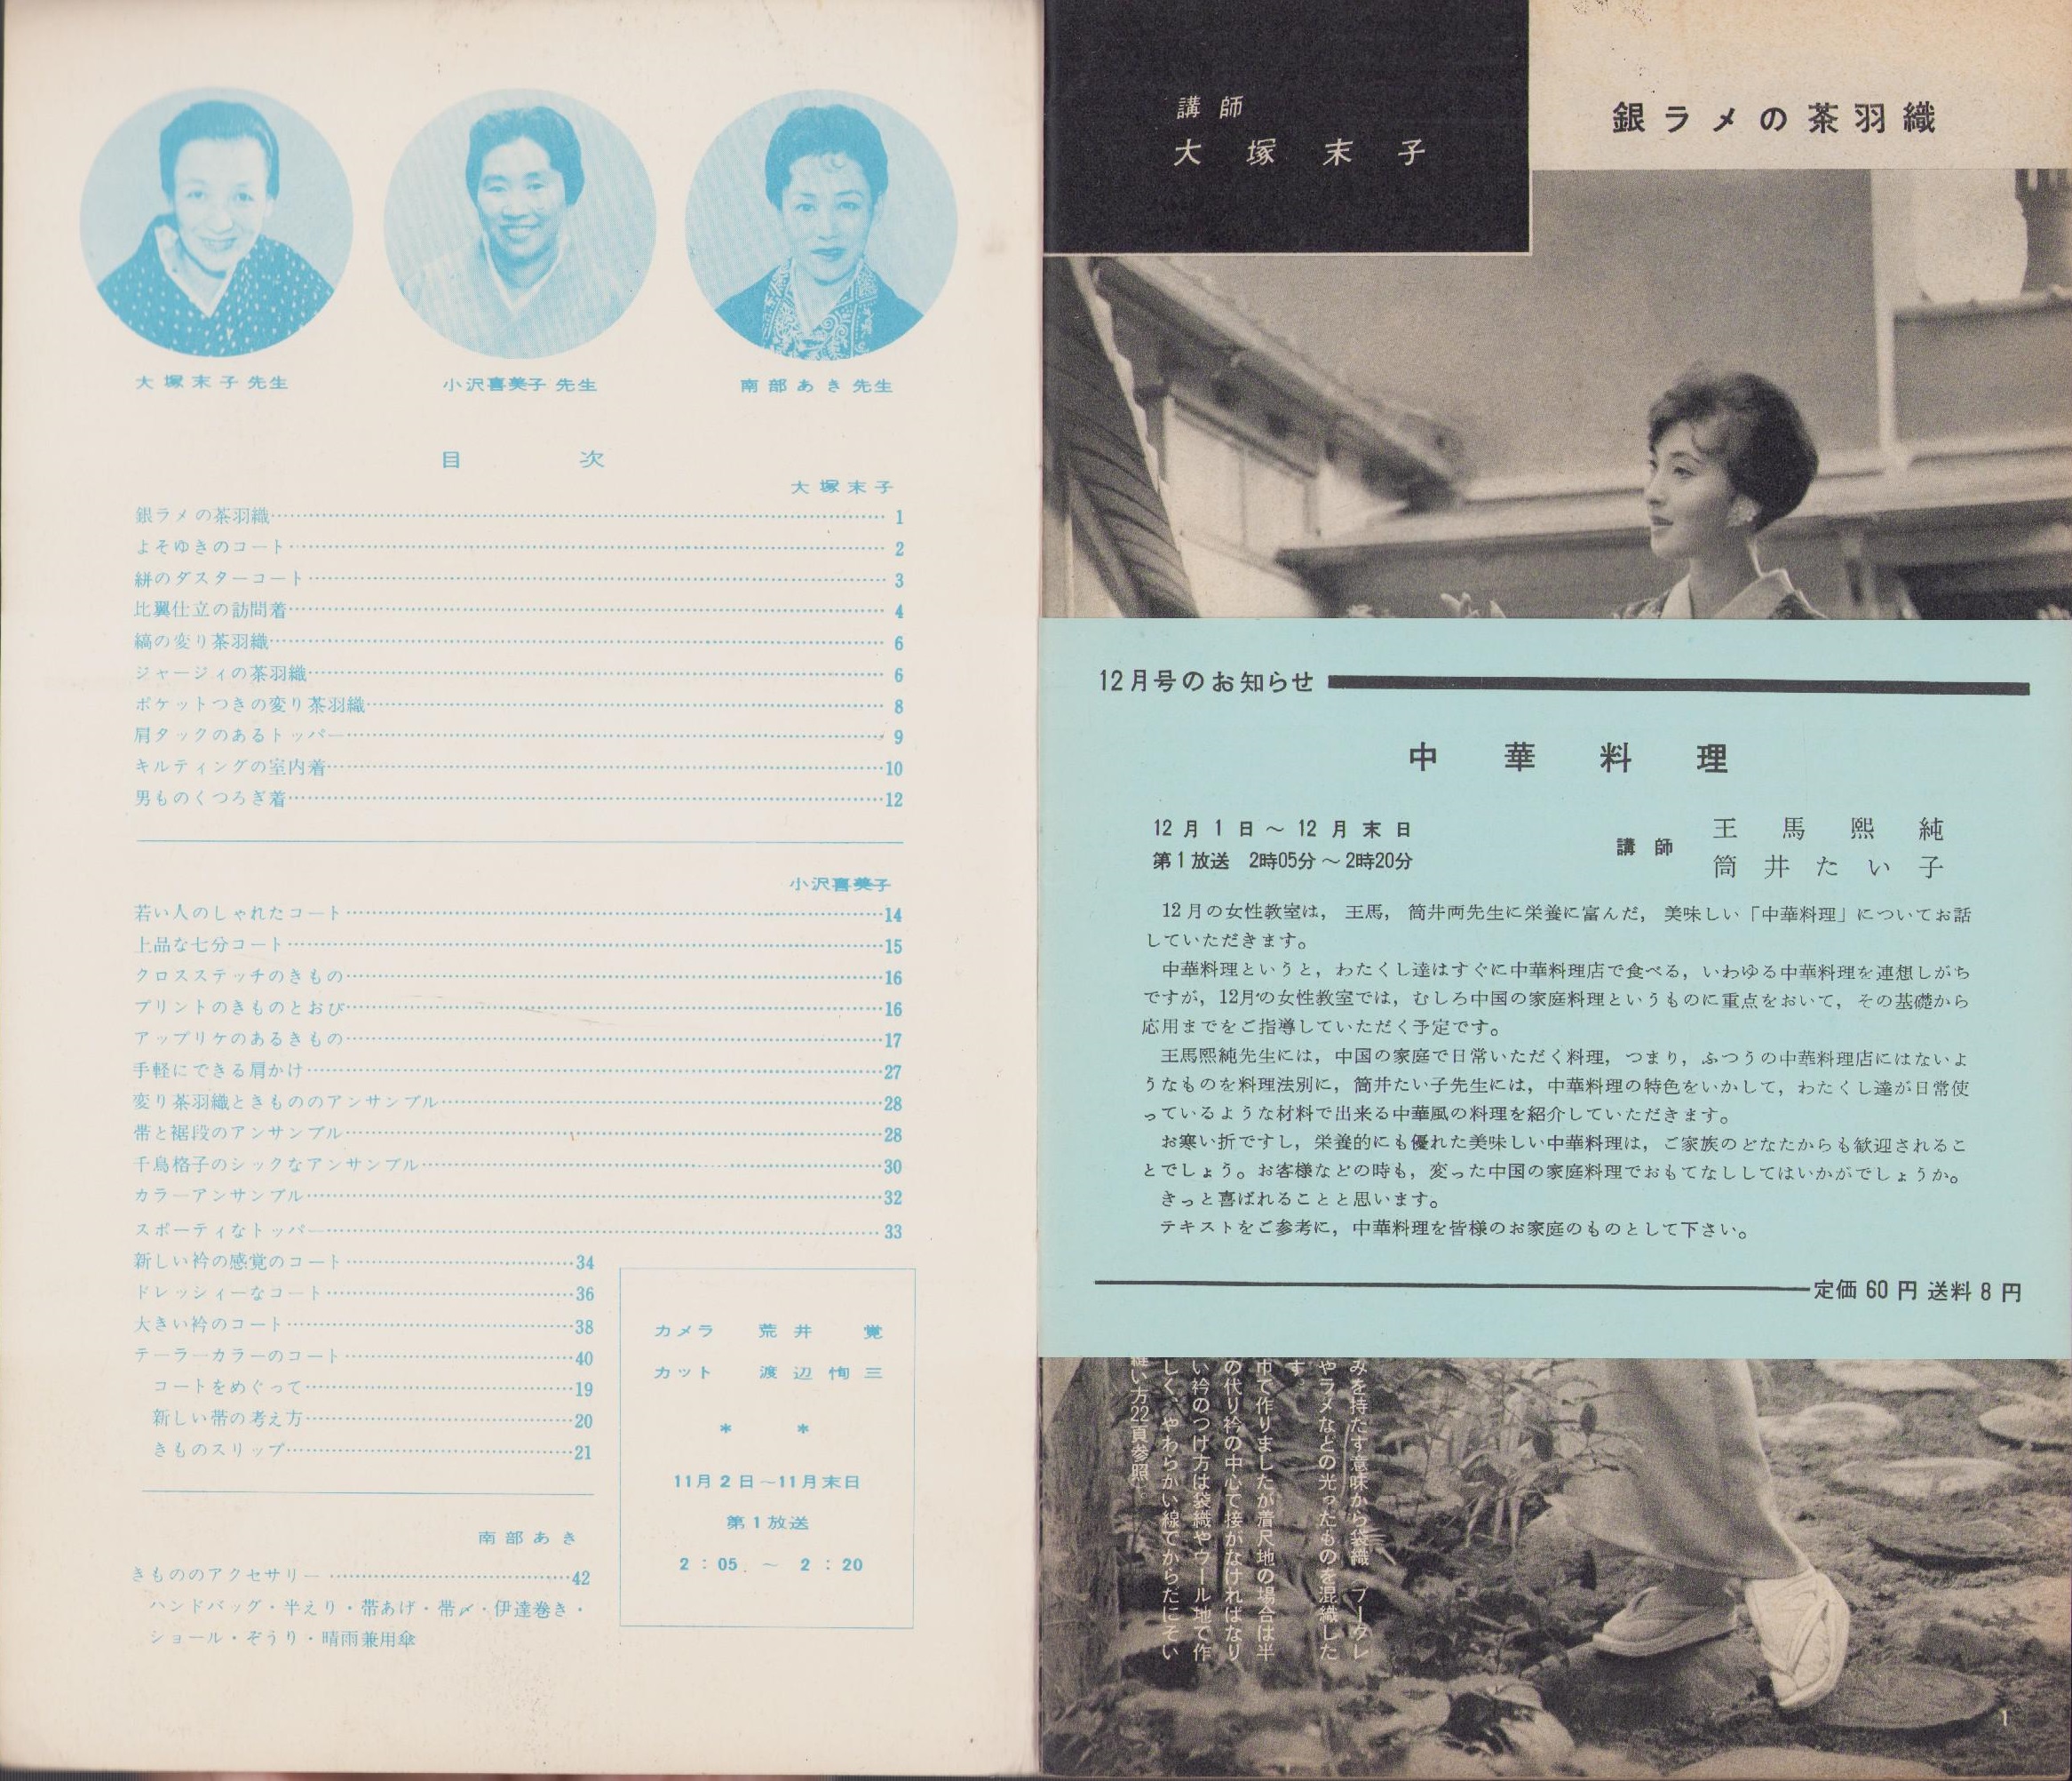 大塚末子先生
小沢喜美子先生
南部あき先生
目次
大塚末子
銀ラメの茶羽織 1
よそゆきのコート 2
絣のダスターコート 3
比翼仕立の訪問着 4
縞の変り茶羽織 6
ジャージィの茶羽織 6
ポケットつきの変り茶羽織 8
肩タックのあるトッパー 9
キルティングの室内着 10
男ものくつろぎ着 12
小沢喜美子
若い人のしゃれたコート 14
上品な七分コート 15
クロスステッチのきもの 16
プリントのきものとおび 16
アップリケのあるきもの 17
手軽にできる肩かけ 27
変り茶羽織ときもののアンサンブル 28
帯と裾段のアンサンブル 28
千鳥格子のシックなアンサンブル 30
カラーアンサンブル 32
スポーティなトッパー 33
新しい衿の感覚のコート 34
ドレッシィーなコート 36
大きい衿のコート 38
テーラーカラーのコート 40
コートをめぐって 19
新しい帯の考え方 20
きものスリップ 21
南部あき
きもののアクセサリー 42
ハンドバッグ・半えり・帯あげ・帯〆・伊達巻き・
ショール・ぞうり・晴雨兼用傘
カメラ 荒井 覚
カット 渡辺恂三
* *
11月2日~11月末日
第1放送
2:05 ~ 2:20
講師
大塚末子
銀ラメの茶羽織
12月号のお知らせ
中華料理
12月1日~12月末日
第1放送 2時05分~2時20分
講師
王馬熙純
筒井たい子
12月の女性教室は,王馬,筒井両先生に栄養に富んだ,美味しい「中華料理」についてお話
していただきます。
中華料理というと,わたくし達はすぐに中華料理店で食べる,いわゆる中華料理を連想しがち
ですが,12月の女性教室では,むしろ中国の家庭料理というものに重点をおいて,その基礎から
応用までをご指導していただく予定です。
王馬熙純先生には,中国の家庭で日常いただく料理,つまり,ふつうの中華料理店にはないよ
うなものを料理法別に,筒井たい子先生には,中華料理の特色をいかして,わたくし達が日常使
っているような材料で出来る中華風の料理を紹介していただきます。
お寒い折ですし,栄養的にも優れた美味しい中華料理は,ご家族のどなたからも歓迎されるこ
とでしょう。お客様などの時も,変った中国の家庭料理でおもてなししてはいかがでしょうか。
きっと喜ばれることと思います。
テキストをご参考に,中華料理を皆様のお家庭のものとして下さい。
定価60円 送料8円
みを持たす意味から袋織
やラメなどの光ったものを混織した
す。
巾で作りましたが着尺地の場合は半
の代り衿の中心で接がなければなり
い衿のつけ方は袋織やウール地で作
しく、やわらかい線でからだにそい
縫い方22頁参照
1